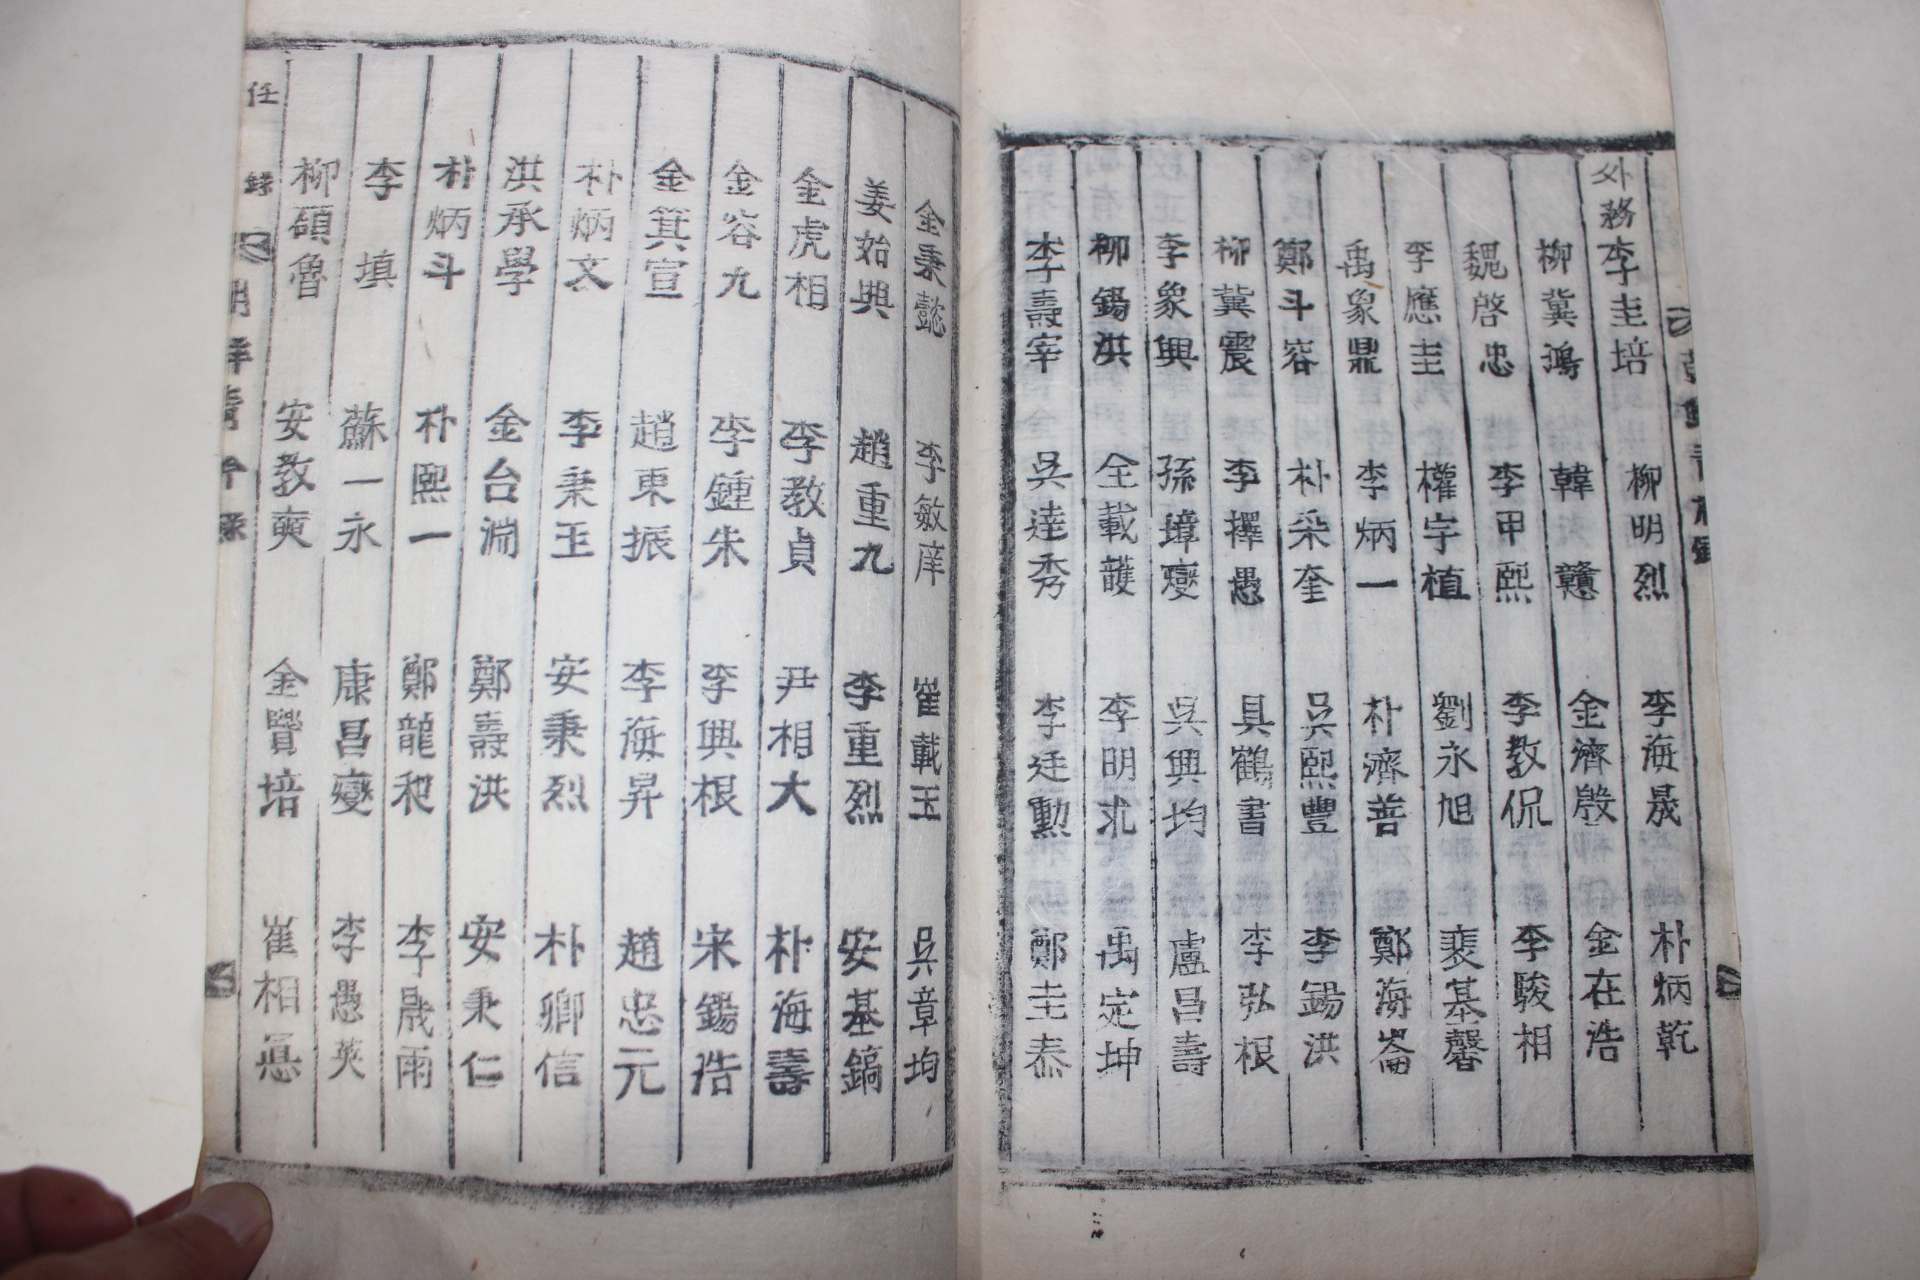 外務李圭培 柳明烈 李海晟 朴炳乾
柳冀鴻 韓憲 金濟殷 金在浩
魏啓忠 李甲熙 李教侃 李駿相
李應圭 權宇植 劉永旭 裵基馨
禹象鼎 李炳一 朴濟善 鄭海崙
鄭斗容 朴來奎 吳熙豐 李錫洪
柳冀震 李擇愚 具鶴書 李弘根
李象興 孫璋燮 吳興均 盧昌壽
柳錫洪 全載頀 李明求 禹定坤
李壽宰 吳達秀 李廷勳 鄭圭泰
金秉懿 李敏庠 崔載玉 吳章均
姜始興 趙重九 李重烈 安基鎬
金虎相 李教貞 尹相大 朴海壽
金容九 李鍾朱 李興根 宋錫浩
金箕宣 趙東振 李海昇 趙忠元
朴炳文 李秉玉 安秉烈 朴卿信
洪承學 金台淵 鄭壽洪 安秉仁
朴炳斗 朴熙一 鄭龍和 李晟雨
李填 蘇一永 康昌燮 李愚英
柳碩魯 安教奭 金贊培 崔相
任錄